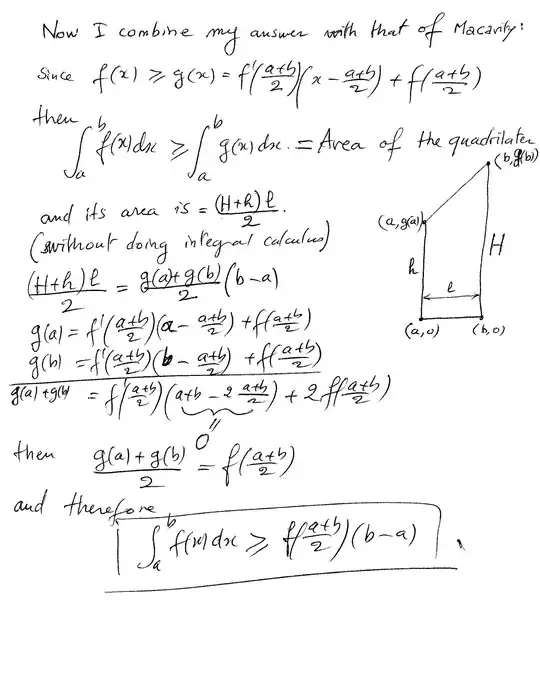 Now I combine my answer with that of Macavity:
Since f(x) ⩾ g(x) = f'(a+b/2)(x − a+b/2) + f(a+b/2)
then
∫_a^b f(x)dx ⩾ ∫_a^b g(x)dx. = Area of the quadrilater
(b, g(b))
and its area is = (H+h)ℓ/2.
(a, g(a))
(without doing integral calculus)
H
(H+h)ℓ/2 = g(a)+g(b)/2 (b−a)
h
ℓ
g(a) = f'(a+b/2)(a − a+b/2) + f(a+b/2)
(a,0) (b,0)
g(b) = f'(a+b/2)(b − a+b/2) + f(a+b/2)
g(a)+g(b) = f'(a+b/2)(a+b − 2 a+b/2) + 2f(a+b/2)
=
0
then g(a)+g(b)/2 = f(a+b/2)
and therefore
∫_a^b f(x)dx ⩾ f(a+b/2)(b−a).